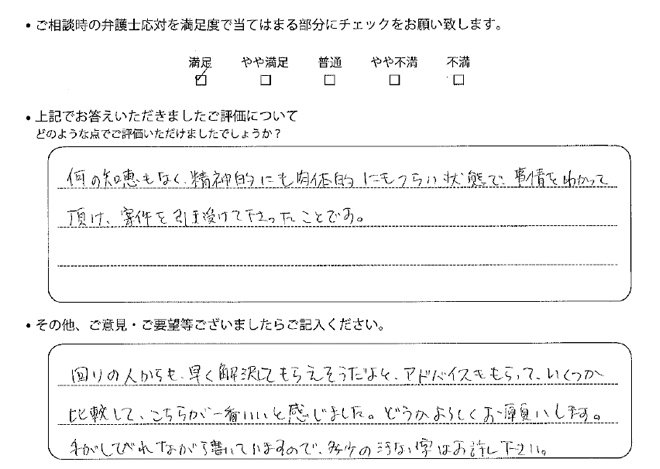 ・ご相談時の弁護士応対を満足度で当てはまる部分にチェックをお願い致します。
満足 やや満足 普通 やや不満 不満
・上記でお答えいただきましたご評価について
どのような点でご評価いただけましたでしょうか?
何の知恵もなく、精神的にも肉体的にもつらい状態で、事情をわかって
頂け、案件を引き受けて下さったことです。
・その他、ご意見・ご要望等ございましたらご記入ください。
回りの人からも、早く解決してもらえそうだよと、アドバイスをもらって、いくつか
比較して、こちらが一番いいと感じました。どうかよろしくお願いします。
手がしびれながら書いていますので、多少の汚ない字はお許し下さい。